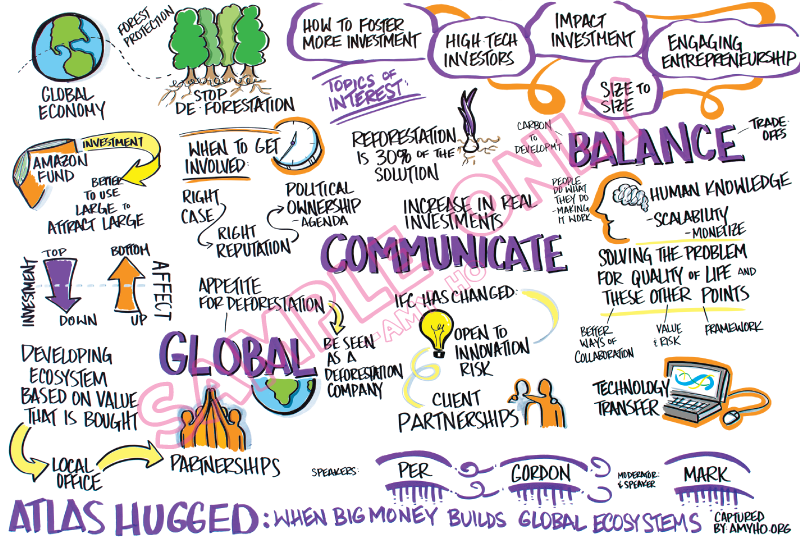 FOREST
PROTECTION
GLOBAL
ECONOMY
STOP
DE-FORESTATION
HOW TO FOSTER
MORE INVESTMENT
HIGH TECH
INVESTORS
IMPACT
INVESTMENT
ENGAGING
ENTREPRENEURSHIP
SIZE TO
SIZE
TOPICS OF
INTEREST:
AMAZON
FUND
INVESTMENT
BETTER
TO USE
LARGE TO
ATTRACT LARGE
WHEN TO GET
INVOLVED:
RIGHT
CASE
RIGHT
REPUTATION
POLITICAL
OWNERSHIP
-AGENDA
REFORESTATION
IS 30% OF THE
SOLUTION
INCREASE IN REAL
INVESTMENTS
CARBON
TO
DEVELOPMT
BALANCE
TRADE-
OFFS
PEOPLE
DO WHAT
THEY DO
-MAKING
IT WORK
HUMAN KNOWLEDGE
-SCALABILITY
-MONETIZE
SOLVING THE PROBLEM
FOR QUALITY OF LIFE AND
THESE OTHER POINTS
BETTER
WAYS OF
COLLABORATION
VALUE
& RISK
FRAMEWORK
TECHNOLOGY
TRANSFER
COMMUNICATE
INVESTMENT
TOP
DOWN
BOTTOM
UP
AFFECT
APPETITE
FOR DEFORESTATION
BE SEEN
AS A
DEFORESTATION
COMPANY
GLOBAL
IFC HAS CHANGED:
OPEN TO
INNOVATION
RISK
CLIENT
PARTNERSHIPS
DEVELOPING
ECOSYSTEM
BASED ON VALUE
THAT IS BOUGHT
LOCAL
OFFICE
PARTNERSHIPS
SPEAKERS:
PER
GORDON
MODERATOR
& SPEAKER
MARK
ATLAS HUGGED: WHEN BIG MONEY BUILDS GLOBAL ECOSYSTEMS
CAPTURED
BY: AMYHO.ORG
SAMPLE ONLY